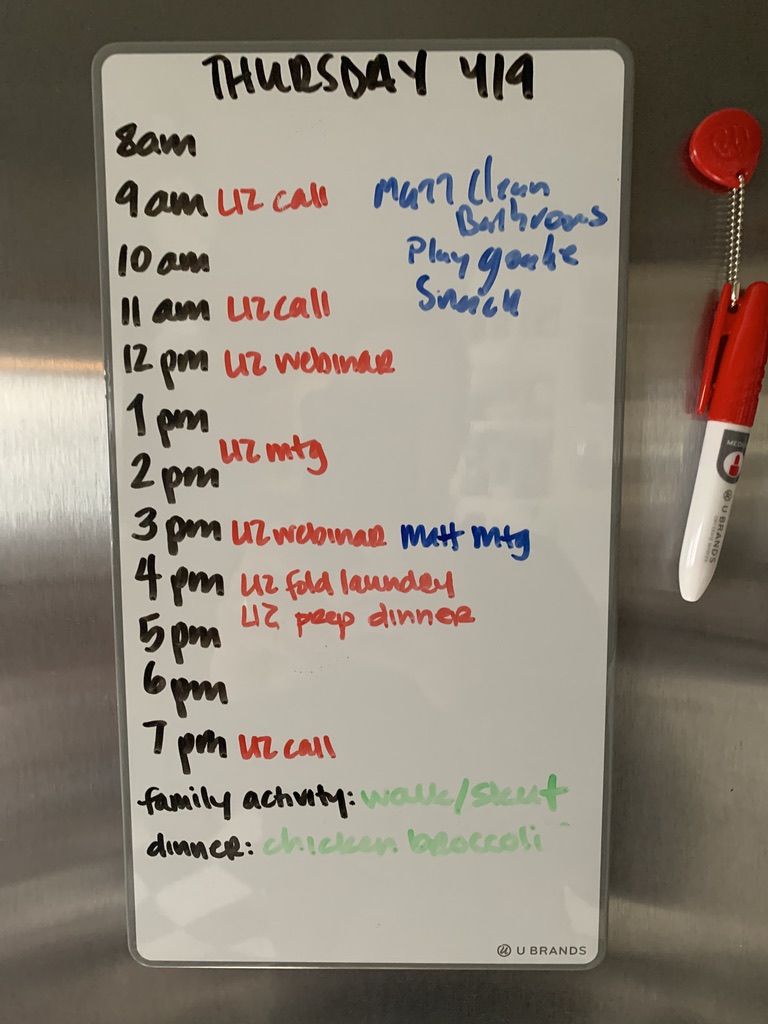 THURSDAY 4/9
8am
9am LIZ call
Matt Clean
Bathrooms
10 am
Play
Snack
11 am LIZ call
12 pm LIZ webinar
1 pm
LIZ mtg
2 pm
3 pm LIZ webinar Matt Mtg
4 pm LIZ fold laundry
LIZ prep dinner
5 pm
6pm
7 pm LIZ call
family activity: walk/skate
dinner: chicken broccoli
U BRANDS
MEDI
U BRANDS